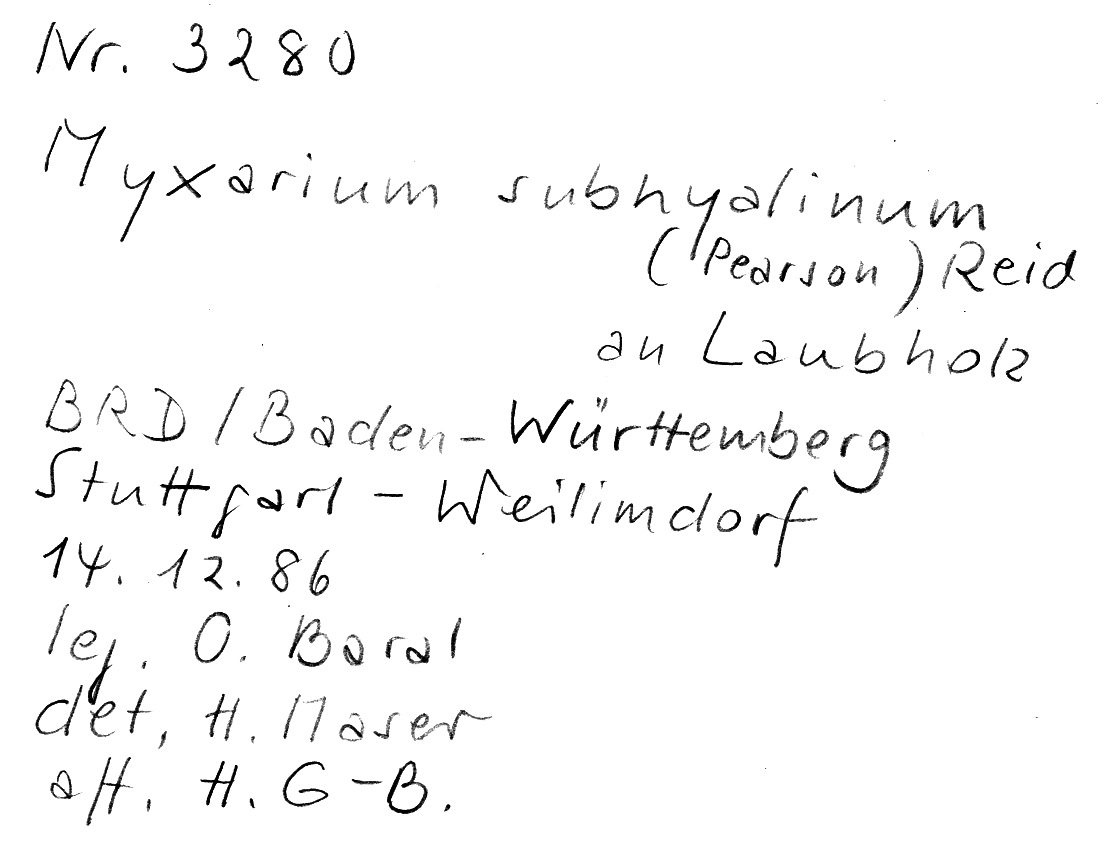 Nr. 3280
Myxarium subhyalinum
(Pearson) Reid
an Laubholz
BRD/Baden-Württemberg
Stuttgart - Weilimdorf
14. 12. 86
leg. O. Baral
det, H. Maser
att. H. G-B.